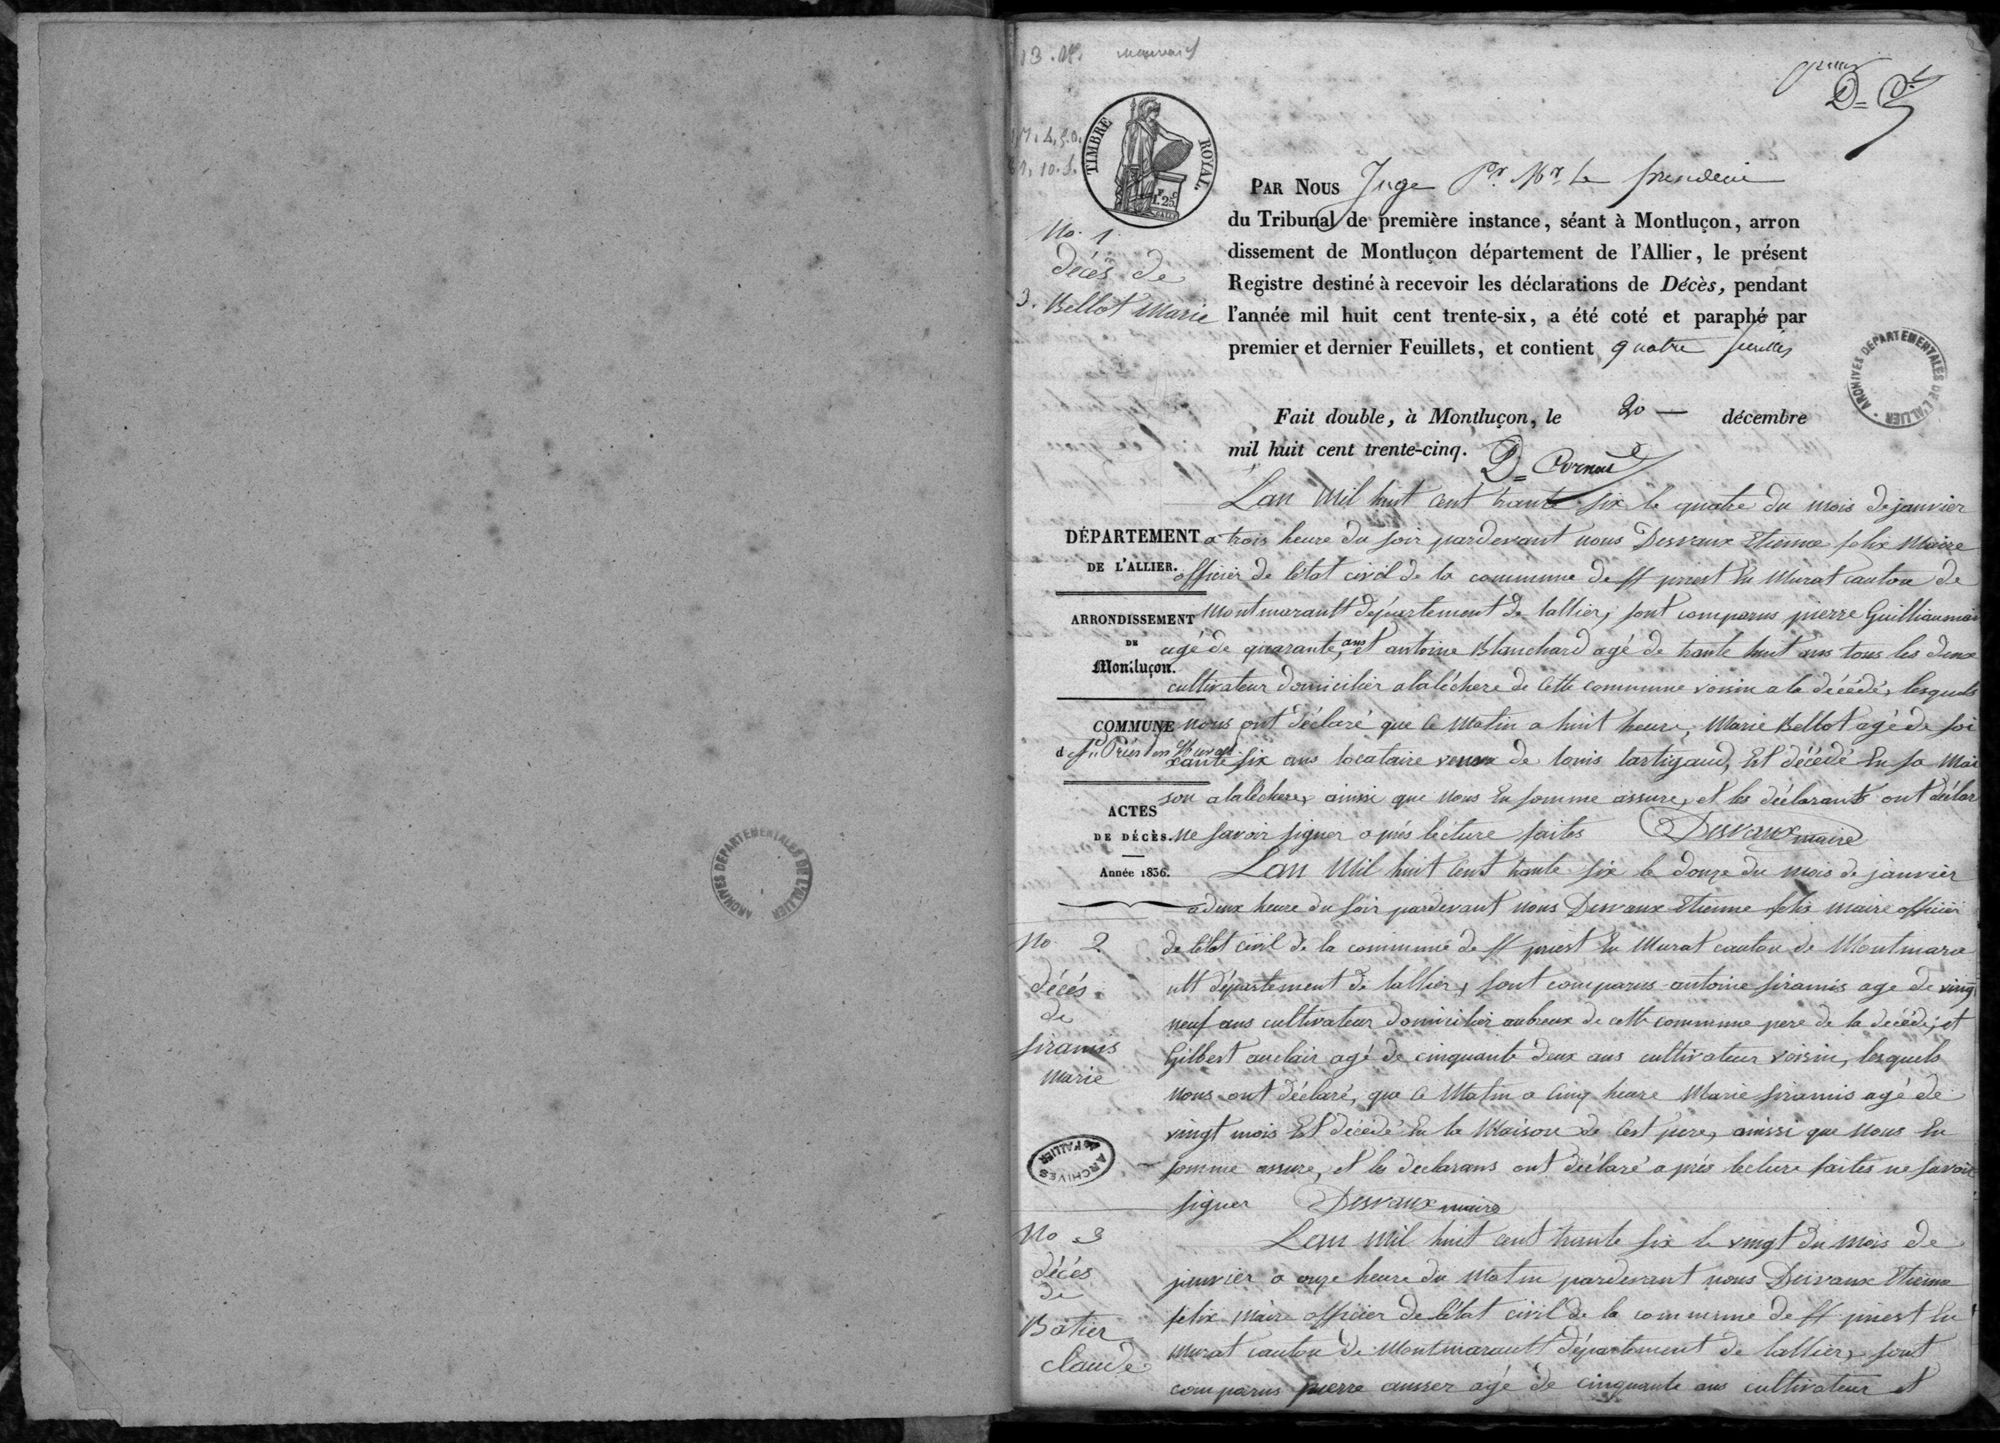 premier
D= C
TIMBRE ROYAL.
1F. 25c
PAR NOUS Juge Pr. Mr. le president
du Tribunal de première instance, séant à Montluçon, arron
dissement de Montluçon département de l'Allier, le présent
Registre destiné à recevoir les déclarations de Décès, pendant
l'année mil huit cent trente-six, a été coté et paraphé par
premier et dernier Feuillets, et contient quatre feuilles
Fait double, à Montluçon, le 20 — décembre
mil huit cent trente-cinq.
ARCHIVES DÉPARTEMENTALES DE L'ALLIER
No. 1
décès de
Bellot Marie
DÉPARTEMENT
DE L'ALLIER.
ARRONDISSEMENT
DE
Montluçon.
COMMUNE
d St. Priest en Murat
ACTES
DE DÉCÈS.
Année 1836.
Lan Mil huit cent trante six le quatre du mois de janvier
a trois heure du soir pardevant nous Desvaux Etienne felix Maire
officier de létat civil de la commune de st priest En Murat canton de
Montmarault département de lallier, sont comparus pierre Guilliaumin
agé de quarante ans et antoine Blanchard agé de trante huit ans tous les deux
cultivateur domicilier alaléchere de cette commune voisin a la décédé, lesquels
nous ont déclaré que ce Matin a huit heure, Marie Bellot agé de soi
xante six ans locataire veuve de louis lartigaud, Est décédé En sa Mai
son alaléchere, ainssi que nous En somme assure, et les déclarants ont déclar
ne savoir signer après lecture faites Desvaux maire
No 2
décés
de
siramis
marie
Lan Mil huit Cent trante six le douze du mois de janvier
a deux heure du soir pardevant nous Desvaux Etienne felix maire officier
de létat civil de la commune de st priest En Murat canton de Montmara
ult département de lallier, sont comparus antoine siramis age de vingt
neuf ans cultivateur domicilier aubreux de cette commune pere de la decédé, et
Gilbert auclair agé de cinquante deux ans cultivateur voisin, lesquels
nous ont déclaré, que ce Matin a Cinq heure Marie siramis agé de
vingt mois Est décédé En la Maison de Cest pere, ainssi que nous En
somme assure, et les declarans ont déclaré après lecture faites ne savoir
signer Desvaux maire
ARCHIVES DE L'ALLIER
No 3
décés
de
Batier
claude
Lan Mil huit cent trante six le vingt du mois de
janvier a onze heure du Matin pardevant nous Desvaux Etienne
felix Maire officier de létat civil de la commune de st priest En
Murat canton de Montmarault département de lallier, sont
comparus pierre ausser agé de cinquante ans cultivateur et
ARCHIVES DÉPARTEMENTALES DE L'ALLIER